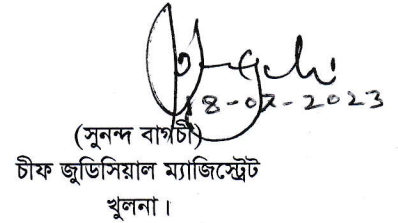 18-07-2023
(সুনন্দ বাগচী)
চীফ জুডিসিয়াল ম্যাজিস্ট্রেট
খুলনা।